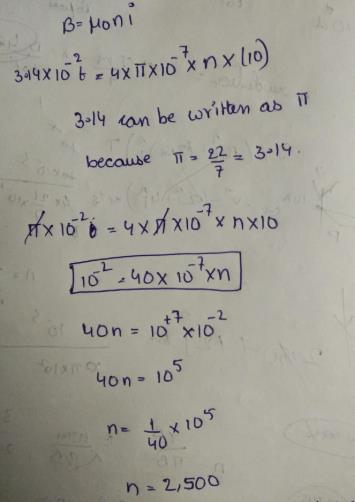 B = μ₀ n i
3.14 × 10⁻² t = 4 × π × 10⁻⁷ × n × (10)
3.14 can be written as π
because π = 22/7 = 3.14.
π × 10⁻² = 4 × π × 10⁻⁷ × n × 10
10⁻² = 40 × 10⁻⁷ × n
40n = 10⁺⁷ × 10⁻²
40n = 10⁵
n = 1/40 × 10⁵
n = 2,500